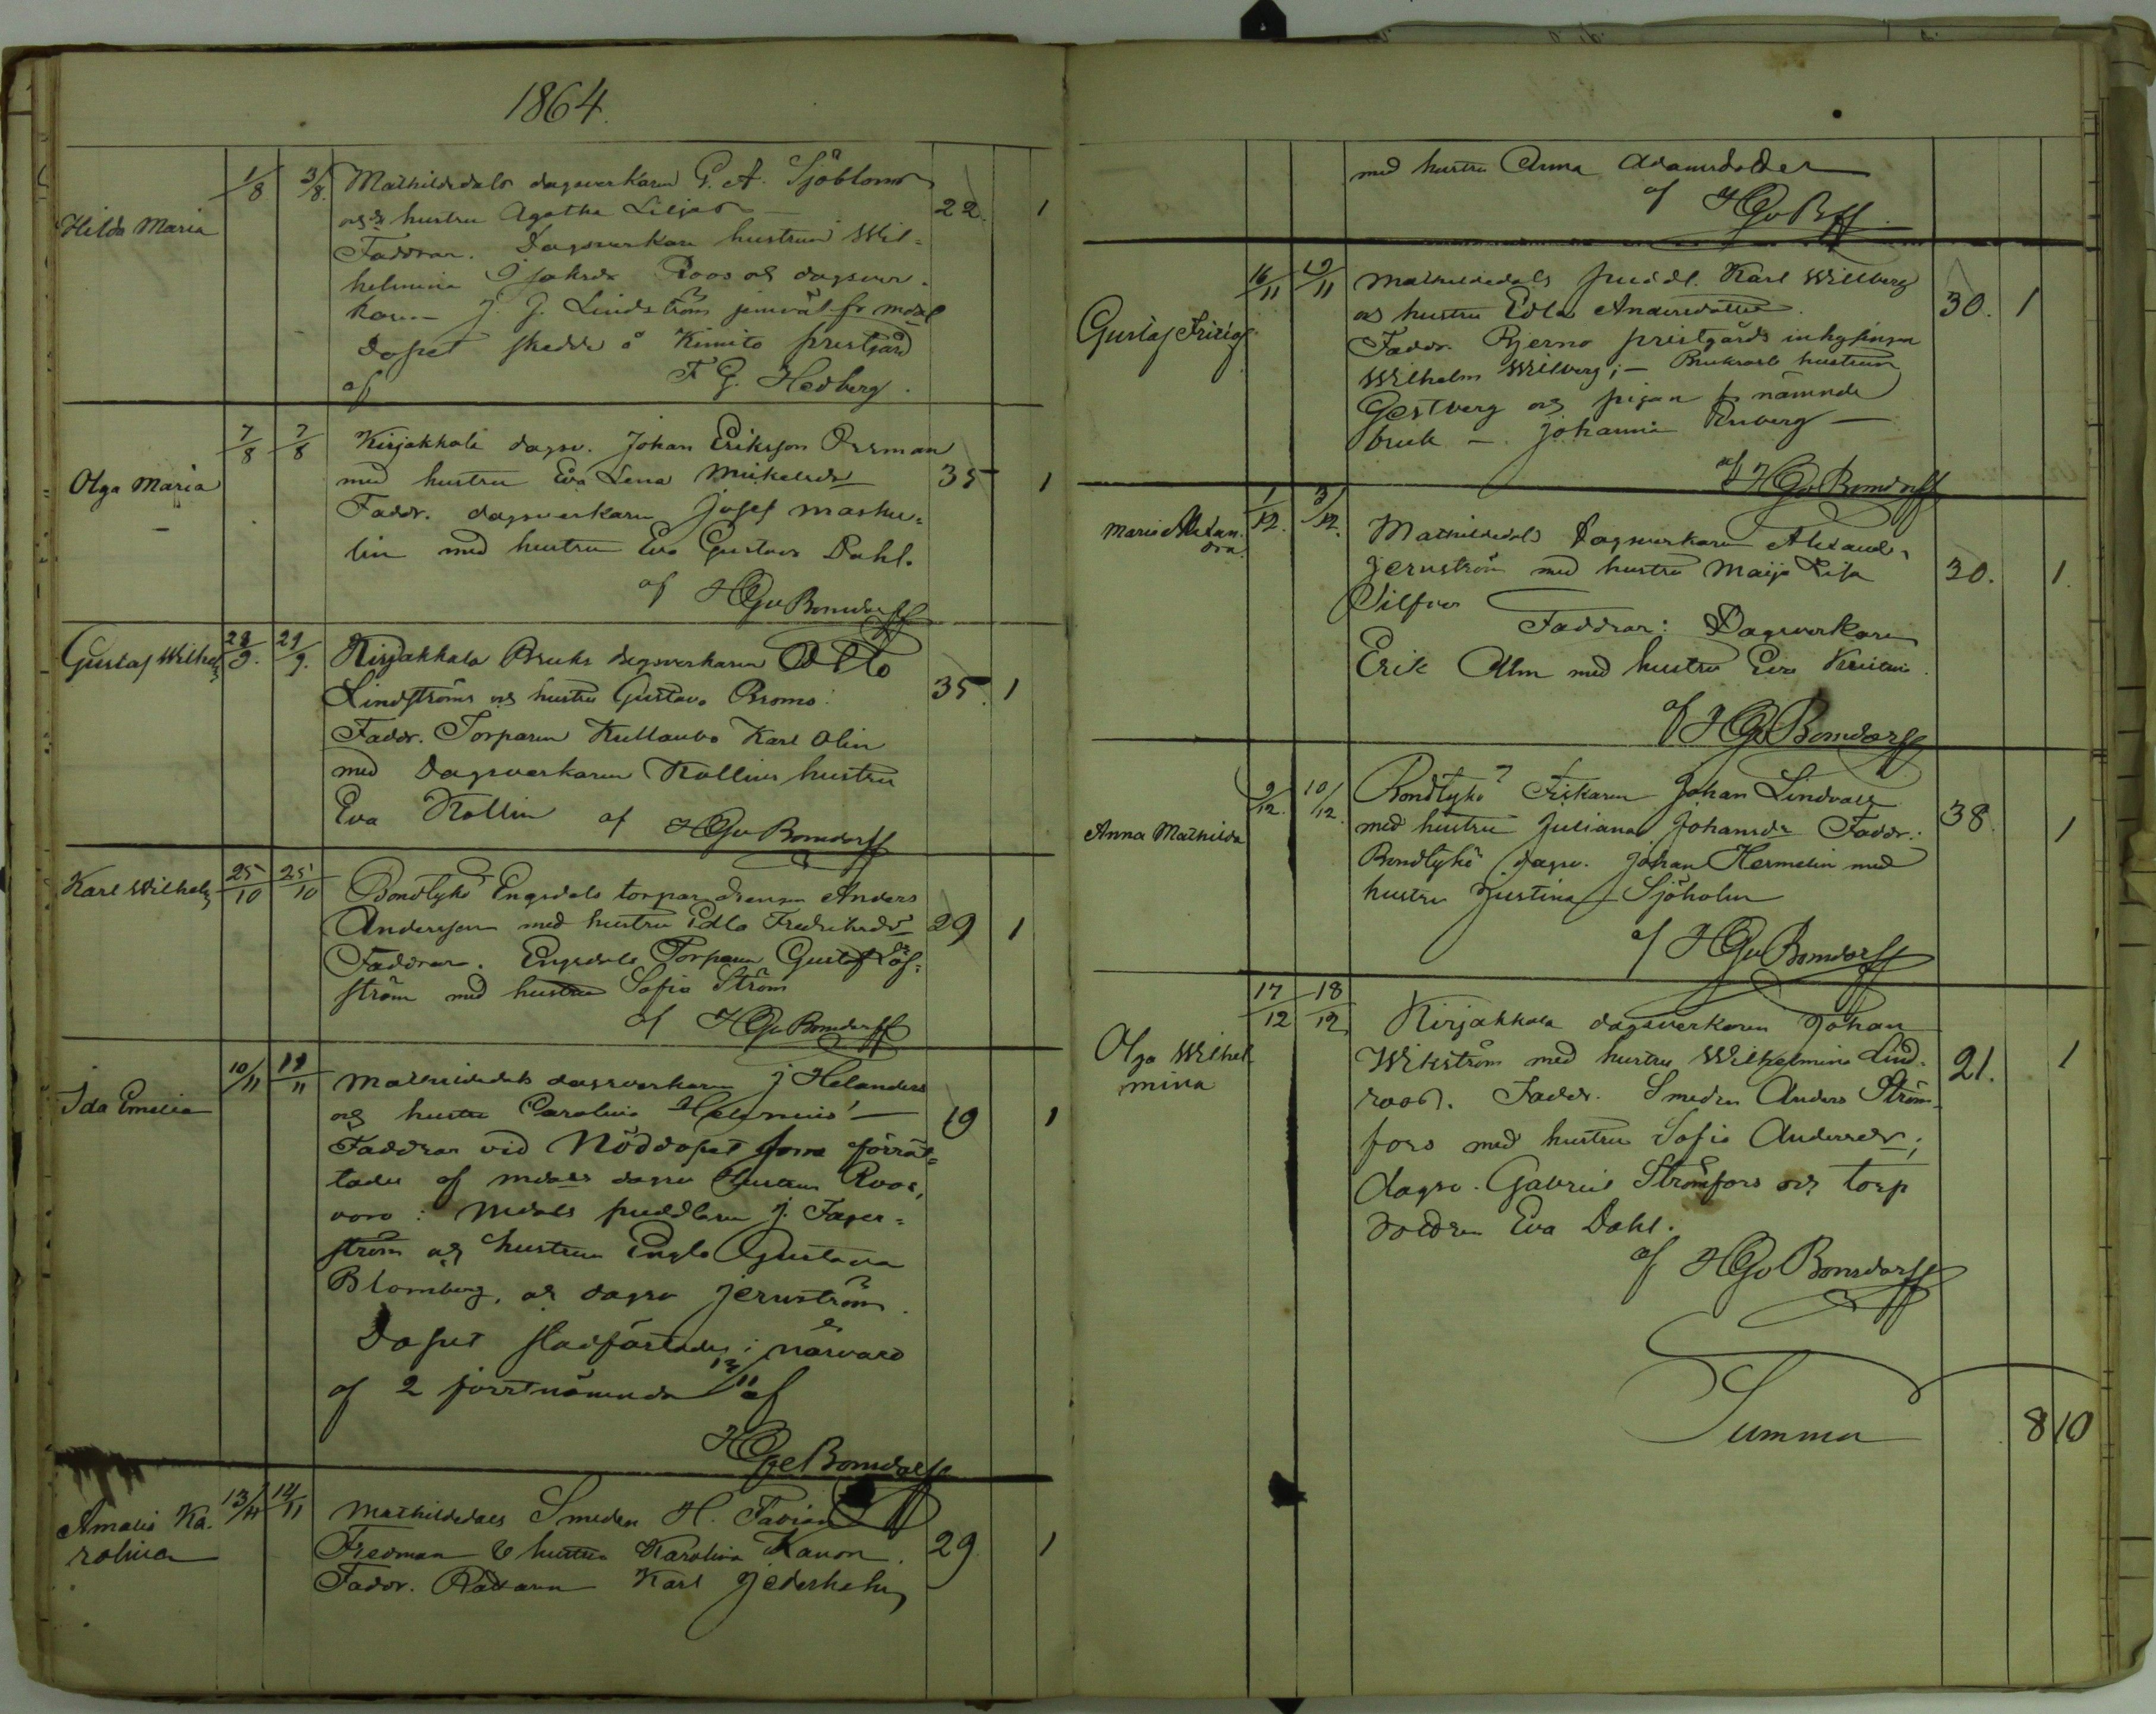 1864.
Hilda Maria 1/8 3/8. Mathildedals dagsverkaren G. A. Sjöbloms
och hustru Agatha Liljas 22. 1
Faddrar. Dagsverkare hustrun Wil=
helmina Jakobsdr Roos och dagsver-
karen J. J. Lindström jemväl fr. mdal
Dopet skedde å Kimito prestgård
af F G. Hedberg.
Olga Maria 7/8 7/8 Kirjakkala dagsv. Johan Eriksson
med hustru Eva Lena Mickelsdr 35 1
Faddr. dagsverkaren Josef masku=
lin med hustru Eva Gustava Dahl.
af HGvBonsdorff
Gustaf Wilhelm 28/9. 29/9. Kirjakkala Bruks dagsverkaren Otto
Lindströms och hustru Gustava Broms 35. 1
Faddr. Torparen Kullanbo Karl Olin
med Dagsverkaren Kollins hustru
Eva Kollin af HGvBonsdorff
Karl Wilhelm 25/10 25/10 Bondtykö Engsdals torpar drengen Anders
Andersson med hustru Edla Fredriksdr 29 1
Faddrar. Engsdals Torparen Gustaf Löf=
ström med hustru Sofia Ström
af HGvBonsdorff
Ida Emelia 10/11 11/11 Mathildedals dagsverkaren J Helanders
och hustru Carolina 19 1
Faddrar vid Nöddopet som förrät=
tades af mdals dagsv Roos,
voro: Mdals puddlaren J. Fager=
ström och hustrun Engla Gustava
Blomberg, och dagsv Jernström.
Dopet stadfästades i närvaro
af 2 förstnämnda 13/11 af
HGvBonsdorff
Amalia Ka- 13/11 14/11 Mathildedals Smeden H. Fabian
rolina Fredman & hustru Karolina Kanon. 29 1
Faddr. Karl Jederholm
med hustru Anna Adamsdotter
af HGvBff.
Gustaf Fritiof 16/11 19/11 Mathildedals puddl. Karl Willberg
och hustru Edla Andersdotter. 30. 1
Faddr. Bjerno prestgårds inhysingen
Wilhelm Wilberg; – Bruksarb hustrun
Gestberg och pigan fr nämnde
bruk –. Johanna Ruberg –
af HGvBonsdorff
Maria Alexan- 1/12. 3/12. Mathildedals Dagsverkaren Alexand.
dra. Jernström med hustru Maija Lisa 30. 1.
Silfver Faddrar: Dagsverkaren
Erik Alm med hustru Eva
af HGvBonsdorff
Anna Mathilda 9/12. 10/12. Bondtykö Fiskaren Johan Lindvall 38. 1
med hustru Juliana Johansdr Faddr.
Bondtykö dagsv. Johan Hermelin med
hustru Justina Sjöholm
af HGvBonsdorff
Olga Wilhel 17/12 18/12 Kirjakkala dagsverkaren Johan
mina Wikström med hustru Wilhelmina Lind- 21. 1
roos. Faddr. Smeden Anders Ström-
fors med hustru Sofia Andersdr;
dagsv. Gabriel Strömfors och torp
dottren Eva Dahl.
af HGvBonsdorff
Summa 8 10